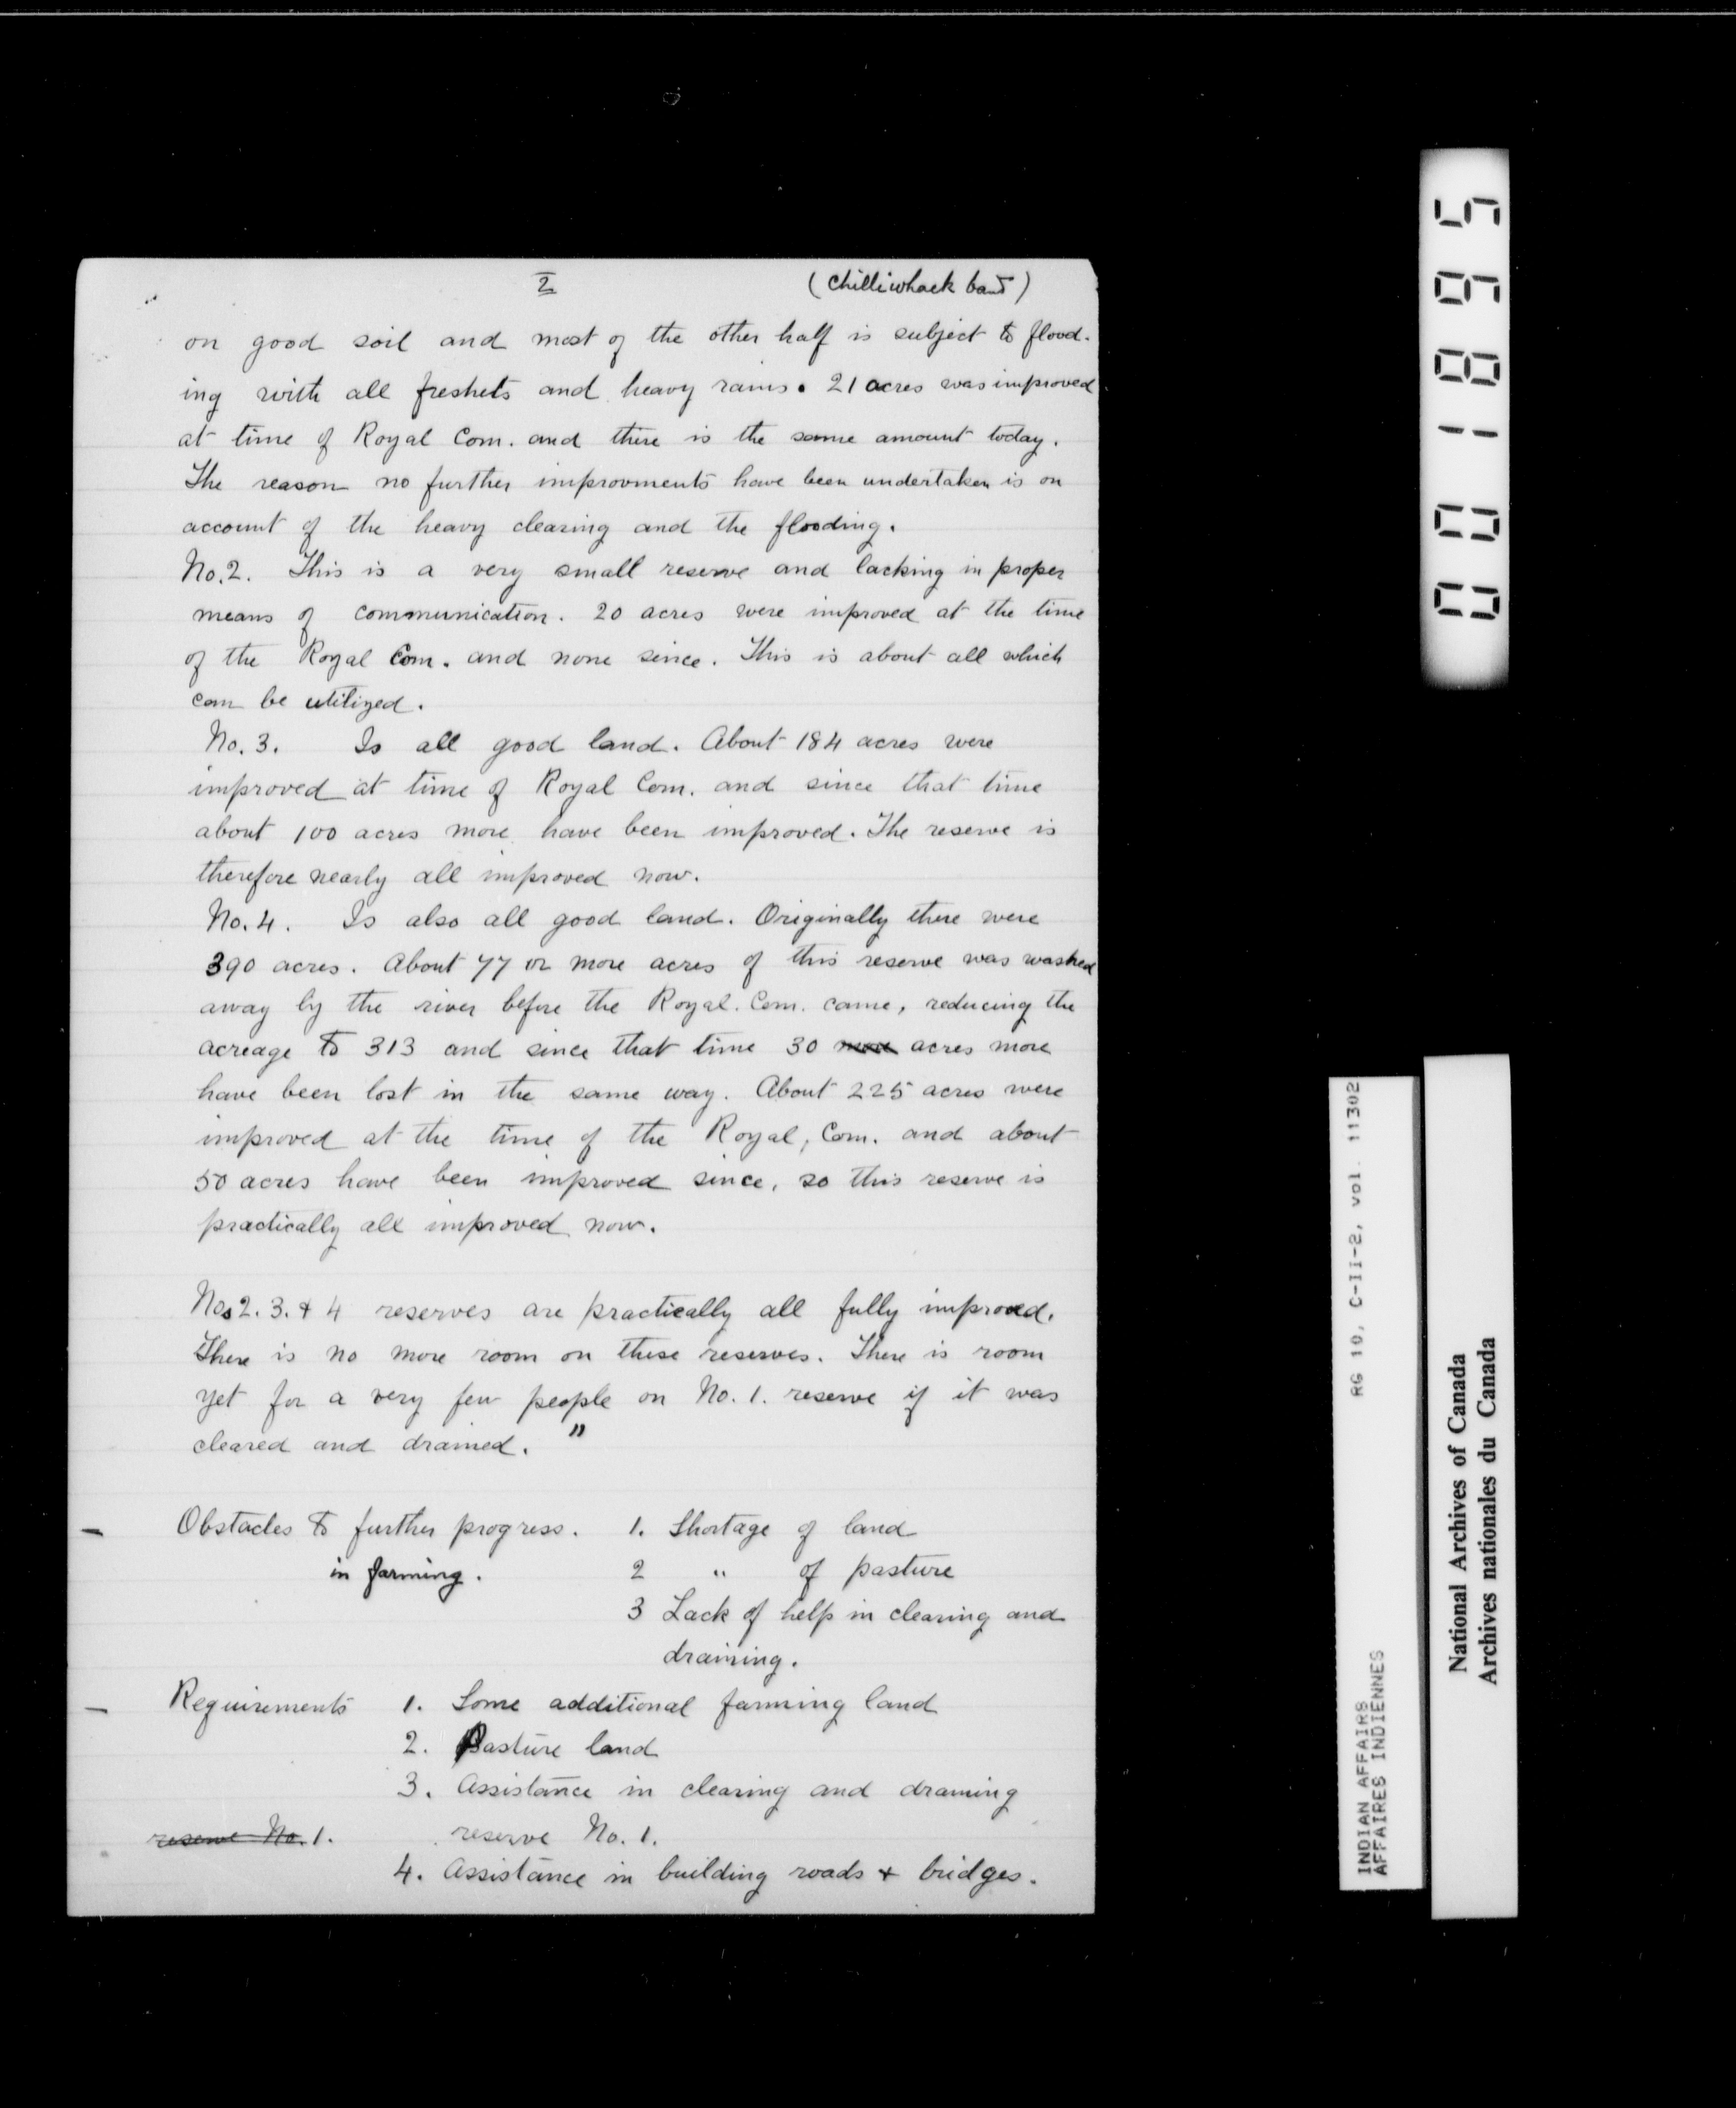 2 (Chilliwhack band)
on good soil and most of the other half is subject to flood-
ing with all freshets and heavy rains. 21 acres was improved
at time of Royal Com. and there is the same amount today.
The reason no further improvments have been undertaken is on
account of the heavy clearing and the flooding.
No. 2. This is a very small reserve and lacking in proper
means of communication. 20 acres were improved at the time
of the Royal Com. and none since. This is about all which
can be utilized.
No. 3. Is all good land. About 184 acres were
improved at time of Royal Com. and since that time
about 100 acres more have been improved. The reserve is
therefore nearly all improved now.
No. 4. Is also all good land. Originally there were
390 acres. About 77 or more acres of this reserve was washed
away by the river before the Royal. Com. came, reducing the
acreage to 313 and since that time 30 more acres more
have been lost in the same way. About 225 acres were
improved at the time of the Royal, Com. and about
50 acres have been improved since, so this reserve is
practically all improved now.
Nos 2. 3. & 4 reserves are practically all fully improved.
There is no more room on these reserves. There is room
yet for a very few people on No. 1. reserve if it was
cleared and drained. "
- Obstacles to further progress. 1. Shortage of land
in farming. 2 " of pasture
3 Lack of help in clearing and
draining.
- Requirements 1. Some additional farming land
2. Pasture land
3. Assistance in clearing and draining
reserve No. 1. reserve No. 1.
4. Assistance in building roads & bridges.
001895
RG 10, C-II-2, vol. 11302
INDIAN AFFAIRS
AFFAIRES INDIENNES
National Archives of Canada
Archives nationales du Canada